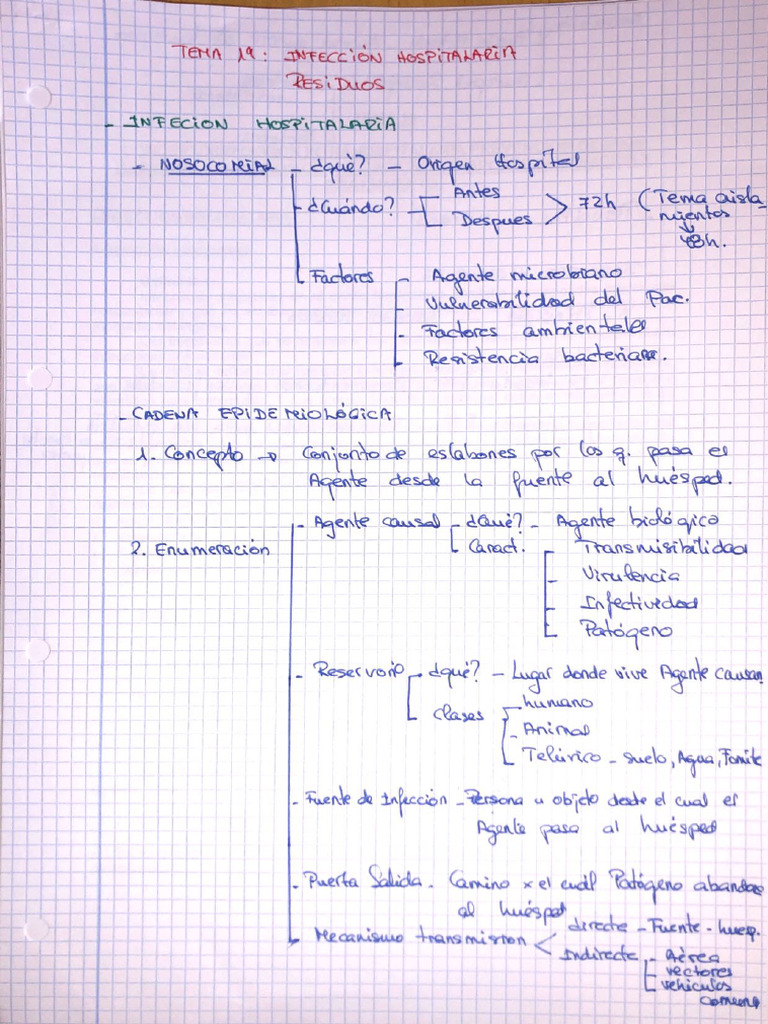 TEMA 19: INFECCIÓN HOSPITALARIA
RESIDUOS
- INFECION HOSPITALARIA
- NOSOCOMIAL - ¿qué? - Origen Hospital
- ¿Cuándo? - Antes
Despues > 72h (Tema aisla_
mientos
48h.
Factores - Agente microbiano
- Vulnerabilidad del Pac.
- Factores ambientales
- Resistencia bacteriana.
- CADENA EPIDEMIOLÓGICA
1. Concepto → Conjunto de eslabones por los q. pasa el
Agente desde la fuente al huésped.
2. Enumeración
- Agente causal - ¿Qué? - Agente biológico
Caract. - Transmisibilidad
- Virulencia
- Infectividad
- Patógeno
- Reservorio - ¿qué? - Lugar donde vive Agente causan
clases - humano
- Animal
- Telúrico - suelo, Agua, Fomite
- Fuente de Infección - Persona u objeto desde el cual el
Agente pasa al huésped
- Puerta Salida. Camino x el cuál Patógeno abandona
al huésped
- Mecanismo transmision < directe - Fuente - huesp.
Indirecte - Aérea
- vectores
- vehículos
comunes